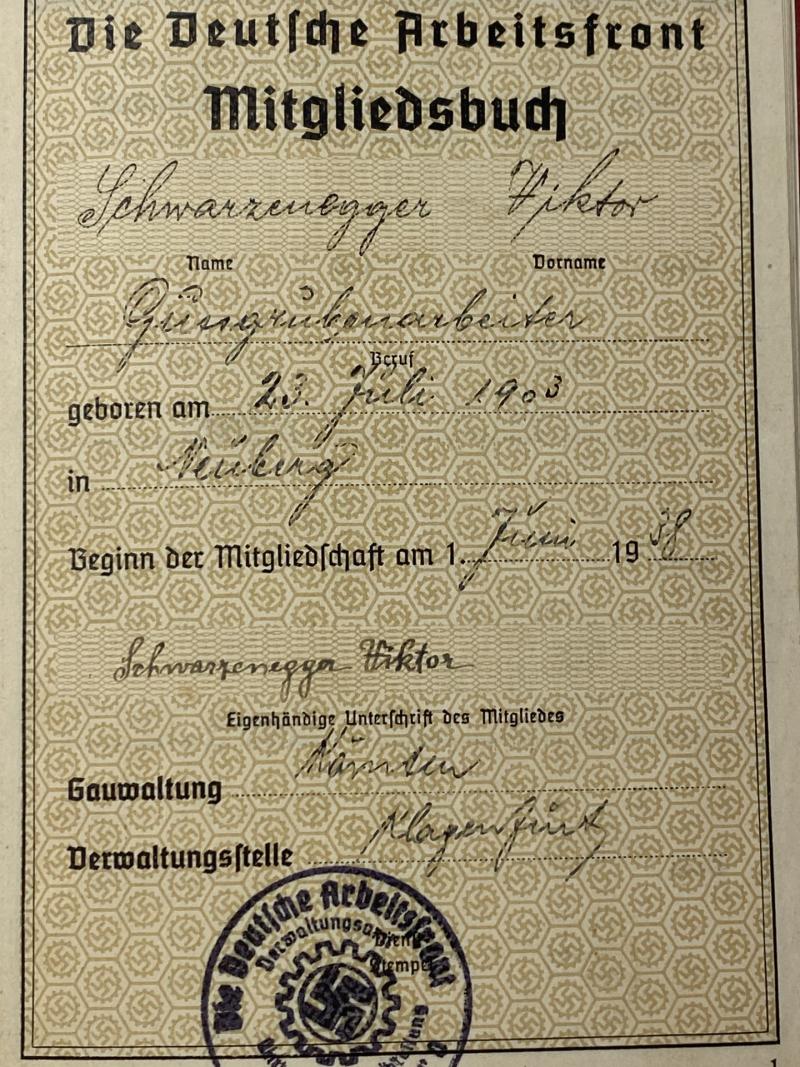 Die Deutsche Arbeitsfront
Mitgliedsbuch
Schwarzenegger Viktor
Name Vorname
Gussgrubenarbeiter
Beruf
geboren am 23. Juli 1903
in Neuberg
Beginn der Mitgliedschaft am 1. Juni 1938
Schwarzenegger Viktor
Eigenhändige Unterschrift des Mitgliedes
Gauwaltung Kärnten
Verwaltungsstelle Klagenfurt
Die Deutsche Arbeitsfront